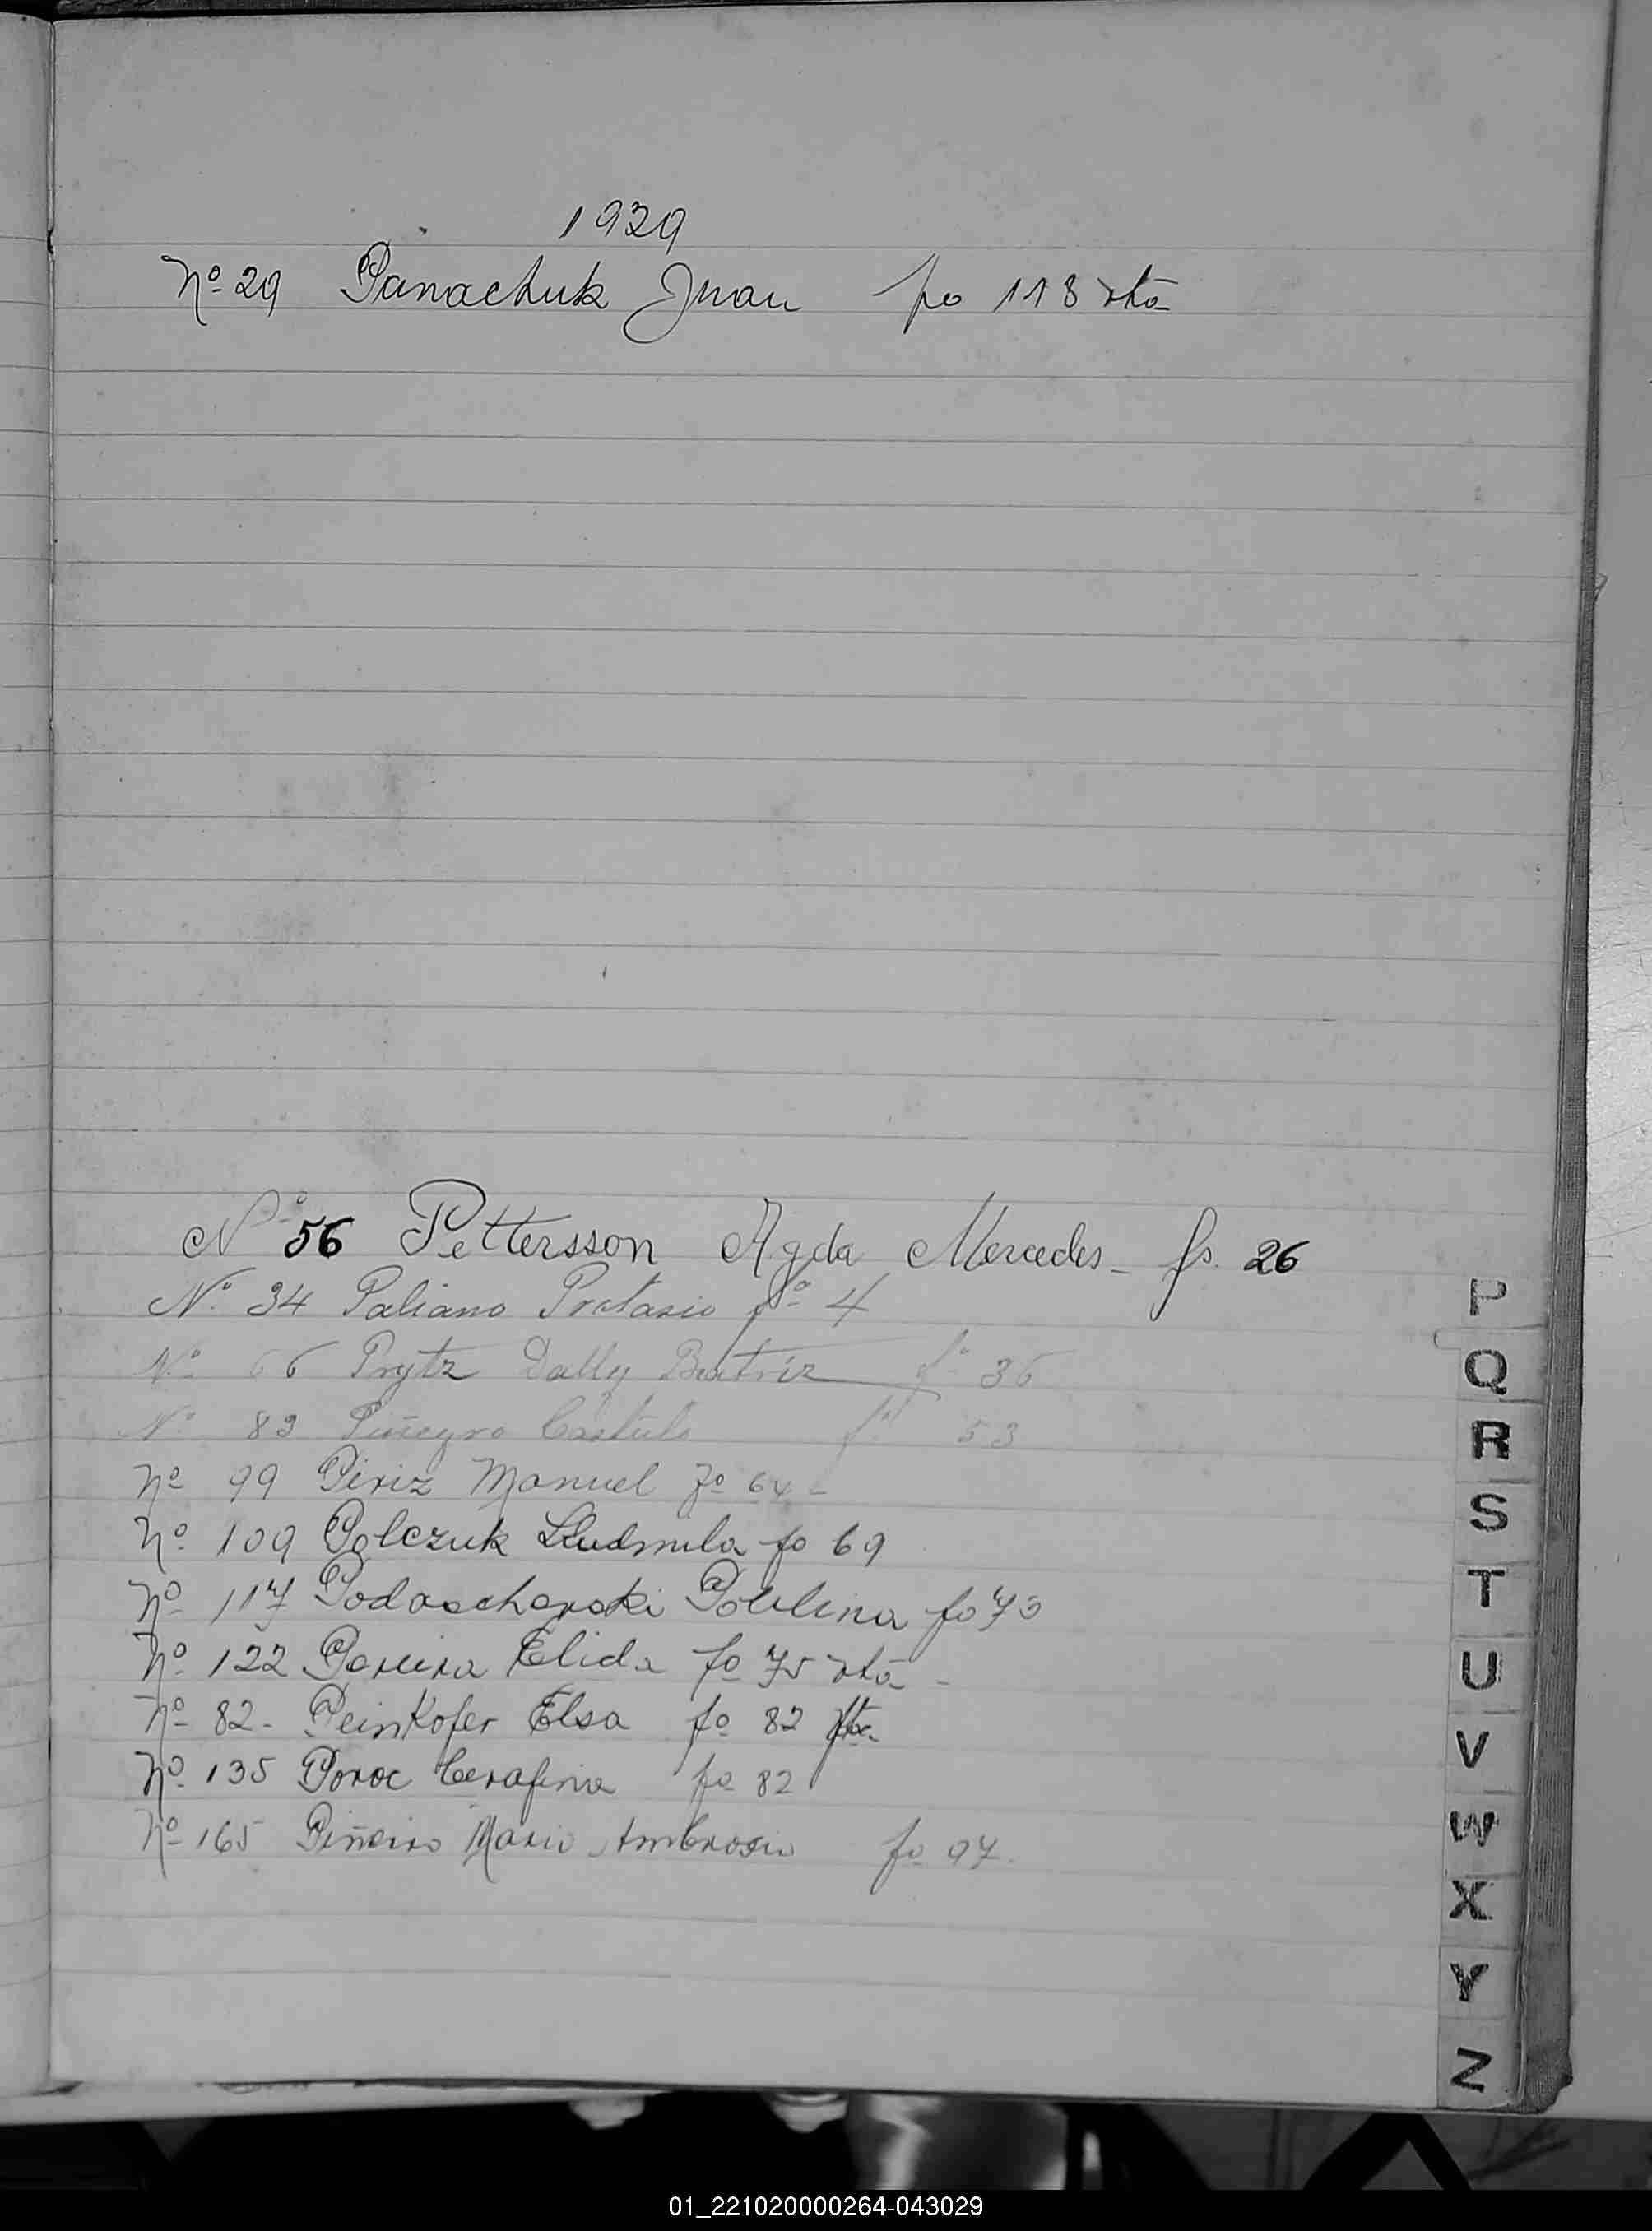 1929
Nº 29 Panachuk Juan fo 118 vta
Nº 56 Pettersson Agda Mercedes - fs. 26
Nº 34 Paliano Protasio fº 4
Nº 66 Prytz Dally Beatriz fº 36
Nº 83 Piñeyro Cástulo fº 53
Nº 99 Piriz Manuel fº 64 -
Nº 109 Polczuk Ludmila fo 69
Nº 117 Fo73
Nº 122 Pereira Elida fo 75 vta -
Nº 82 - Peinkofer Elsa fo 82 vta.
Nº 135 Poroc Cerafina fo 82
Nº 165 Piñeiro Mario Ambrosio fo 97.
P
Q
R
S
T
U
V
W
X
Y
Z
01_221020000264-043029